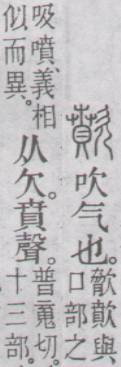 歕
吹气也。
歙歕與
口部之
吸噴、義相
似而異。
从欠。賁聲。
普䰟切。
十三部。